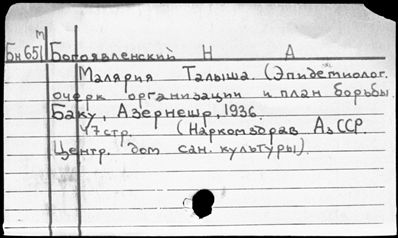 М
Бн 651 Богоявленский Н А
Малярия Талыша. (Эпидемиолог.
очерк организации и план борьбы.
Баку, Азернешр, 1936.
47 стр. (Наркомздрав АзССР.
Центр. дом сан. культуры).